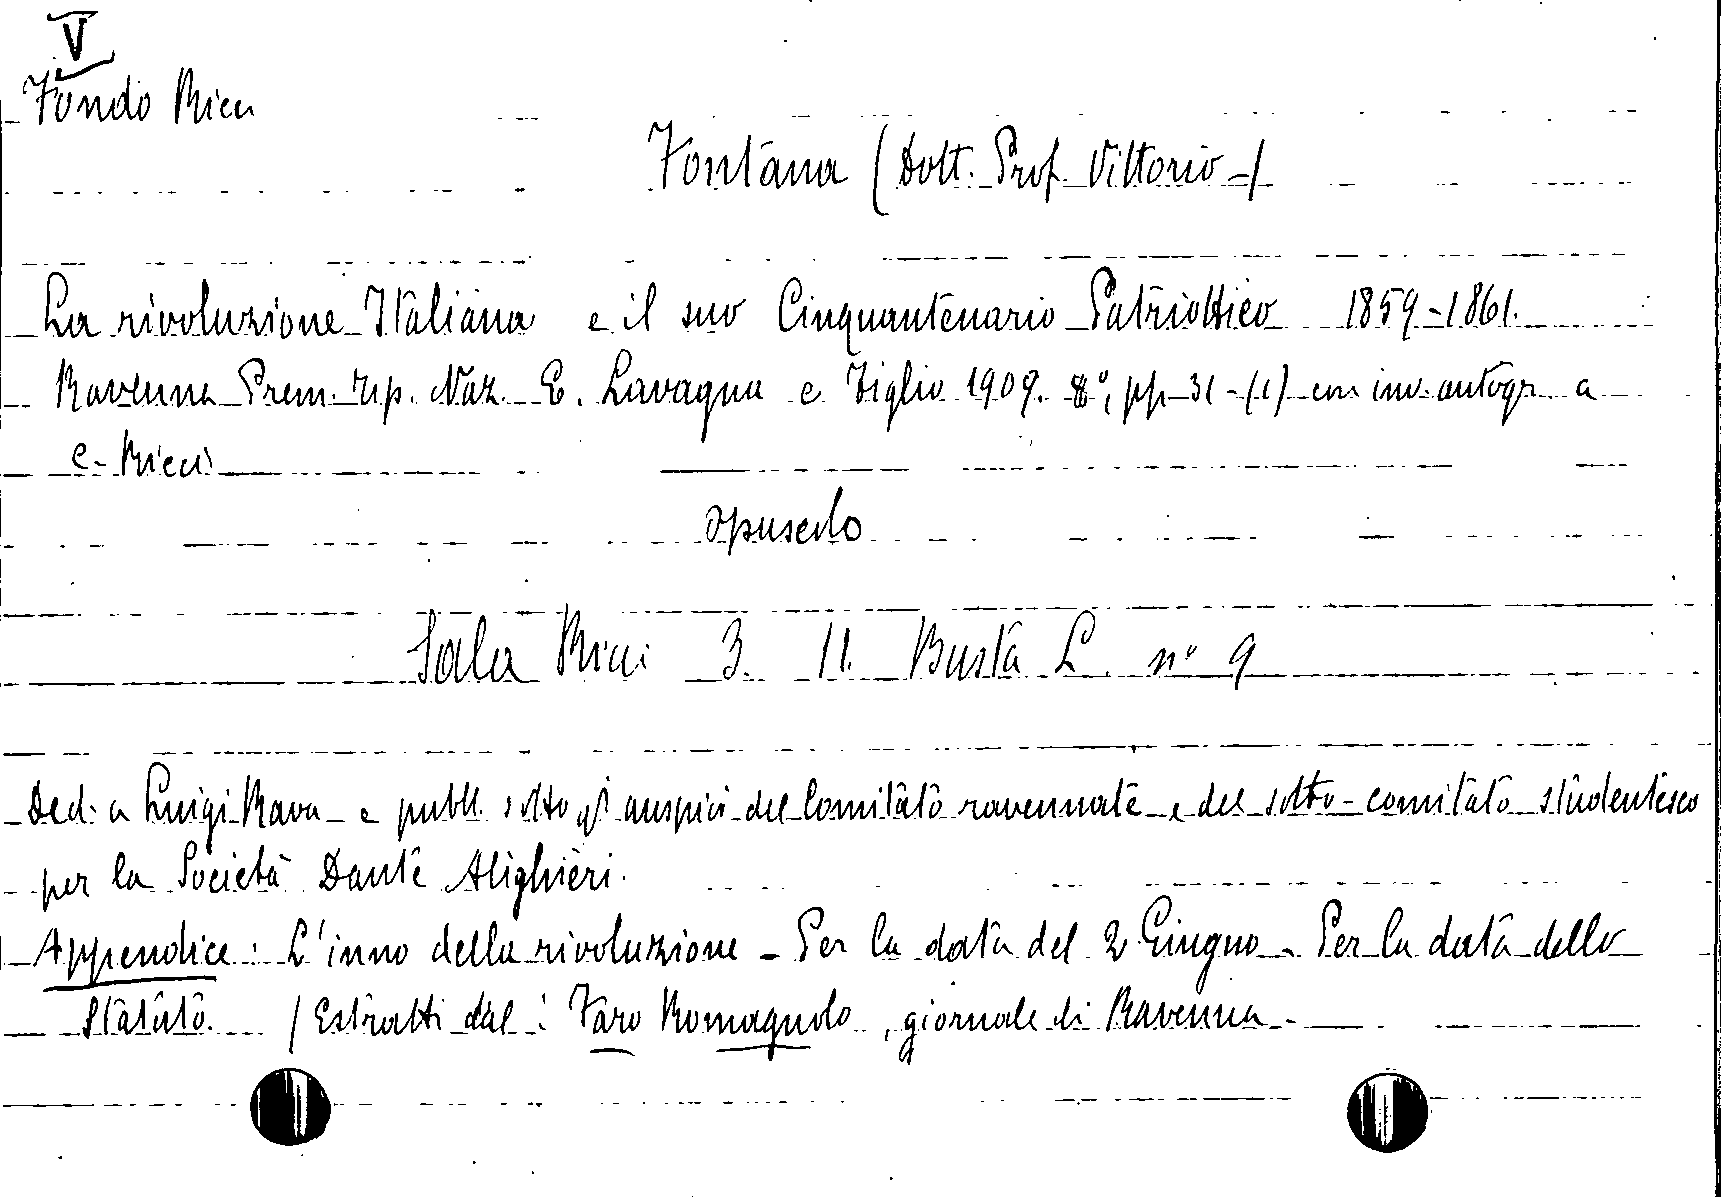 V
Fondo Ricci
Fontana (Dott. Prof. Vittorio -)
La rivoluzione Italiana e il suo Cinquantenario Patriottico 1859-1861.
Ravenna Prem. Tip. Naz. E. Lavagna e Figlio 1909. 8°, pp 31-(1) con inv. autogr. a
C. Ricci
opuscolo
Sala Ricci 3. 11. Busta L n° 9
Ded. a Luigi Rava e pubbl. sotto gli auspici del Comitato ravennate e del sotto-comitato studentesco
per la Società Dante Alighieri.
Appendice: L'inno della rivoluzione - Per la data del 2 Giugno - Per la data dello
Statuto. (Estratti dal: Faro Romagnolo, giornale di Ravenna.